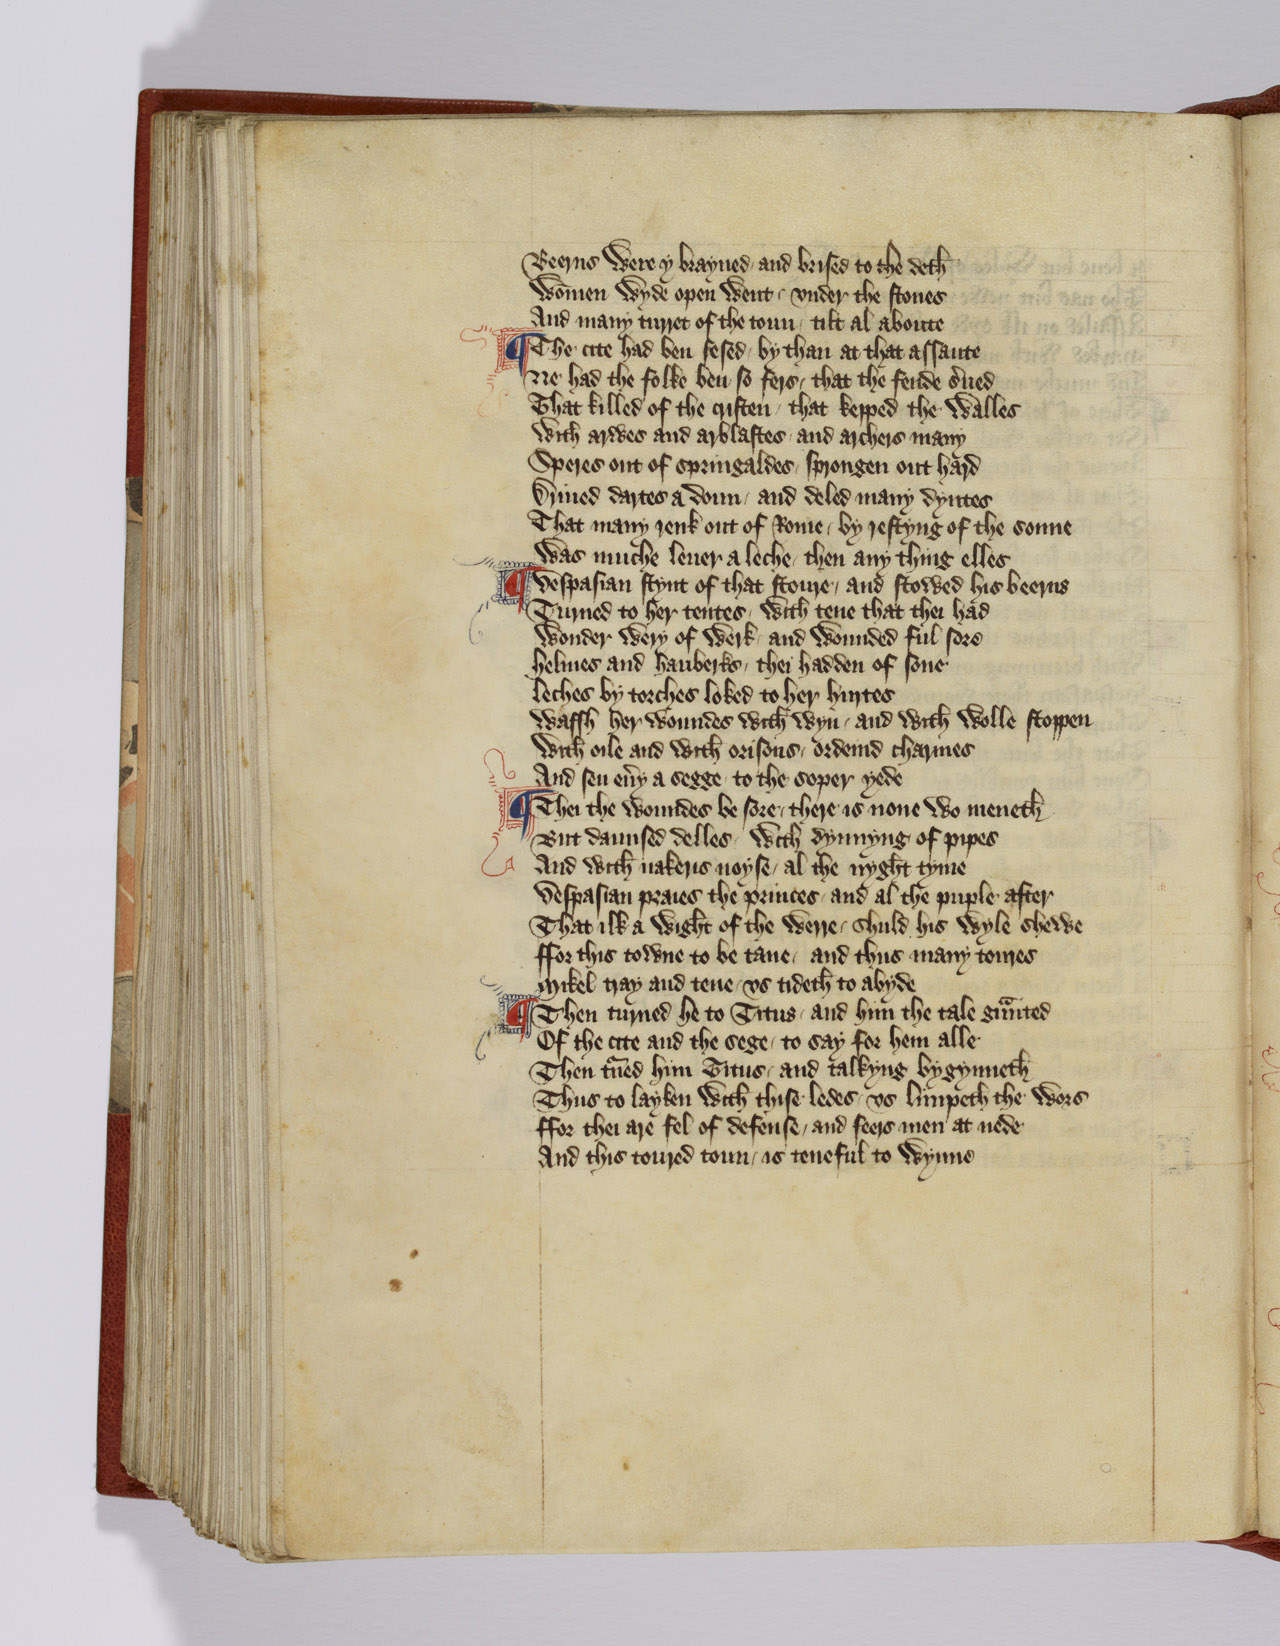 Beerns were y brayned / and brised to the deth
Wōmen wyde open went / vnder the stones
And many turret of the toun / tilt al aboute
¶ The cite had ben sesed / by than at that assaute
Ne had the folke ben so fers / that the fende s̄ued
That killed of the cristen / that kepped the walles
With arwes and arblastes / and archers many
Speres out of springaldes / sprongen out hard
Driued dartes a doun / and deled many dyntes
That many renk out of Rome / by restyng of the sonne
Was muche leuer a leche / then any thing elles
¶ Vespasian stynt of that stoure / and stowed his beerns
Turned to her tentes / with tene that thei had
Wonder wery of werk / and wounded ful sore
helmes and hauberks / thei hadden of sone
leches by torches loked to her hurtes
Wassh her woundes with wyn / and with wolle stoppen
With oile and with orisons / ordeind charmes
And sen eu̅y a segge / to the soper yede
¶ Thei the woundes be sore / there is none wo meneth
But daunsed delles / with dynnyng of pipes
And with nakerns noyse / al the nyght tyme
Vespasian praies the princes / and al the puple after
That ilk a wight of the werre / shuld his wyle shewe
ffor this towne to be tane / and thus many toures
Mikel tray and tene / vs tideth to abyde
¶ Then turned he to Titus / and him the tale gͣunted
Of the cite and the sege / to say for hem alle
Then tu̅ed him Titus / and talkyng bygynneth
Thus to layken with thise ledes / vs limpeth the wors
ffor thei are fel of defense / and feers men at nede
And this toured toun / is teneful to wynne